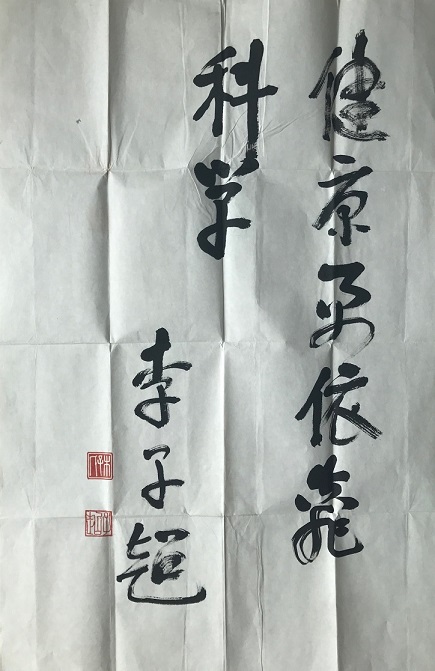 健康要依靠
科学
李子超